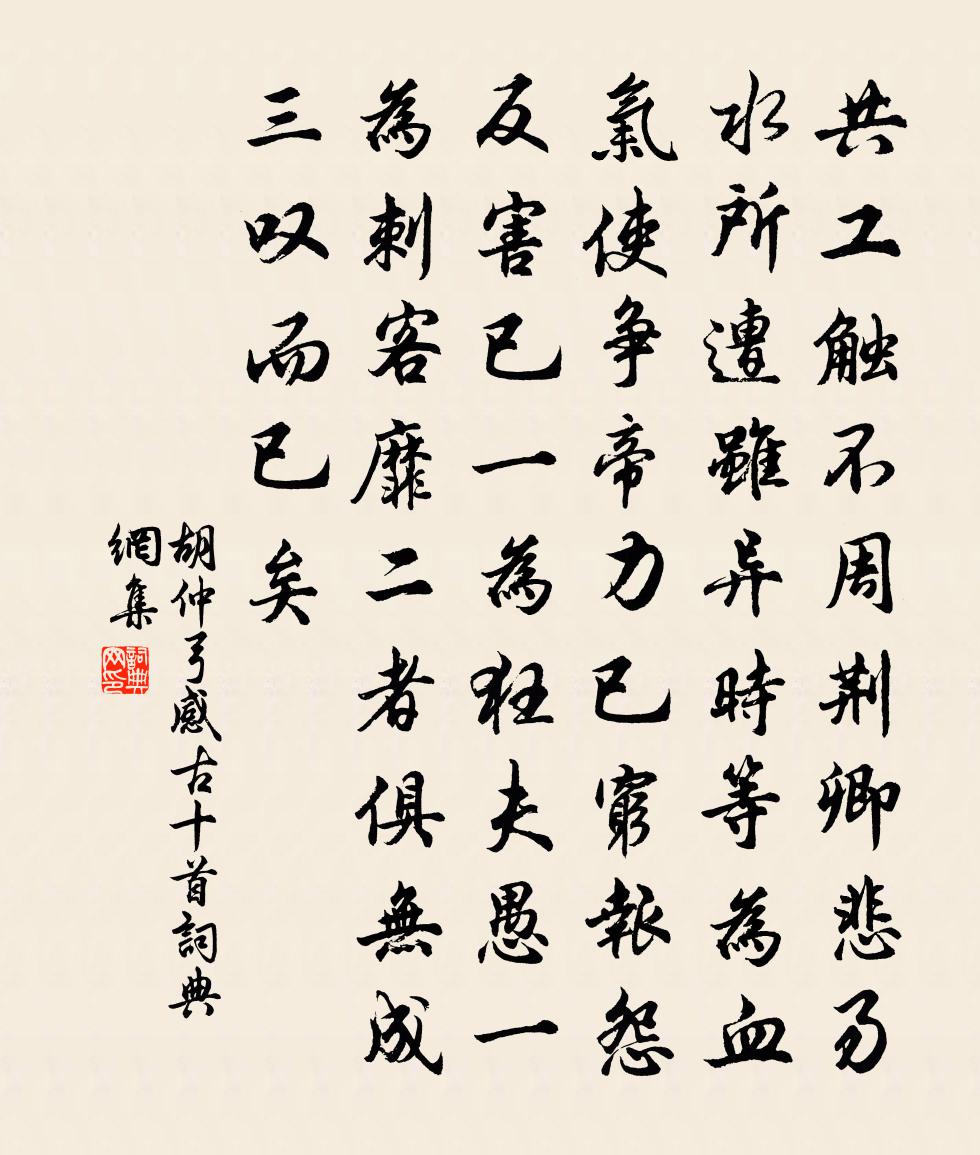 共工触不周荆卿悲易
水所遭雖异時等為血
氣使争帝力已窮報怨
反害已一為狂夫愚一
為刺客靡二者俱無成
三叹而已矣
胡仲弓感古十首詞典
網集
詞典
网印